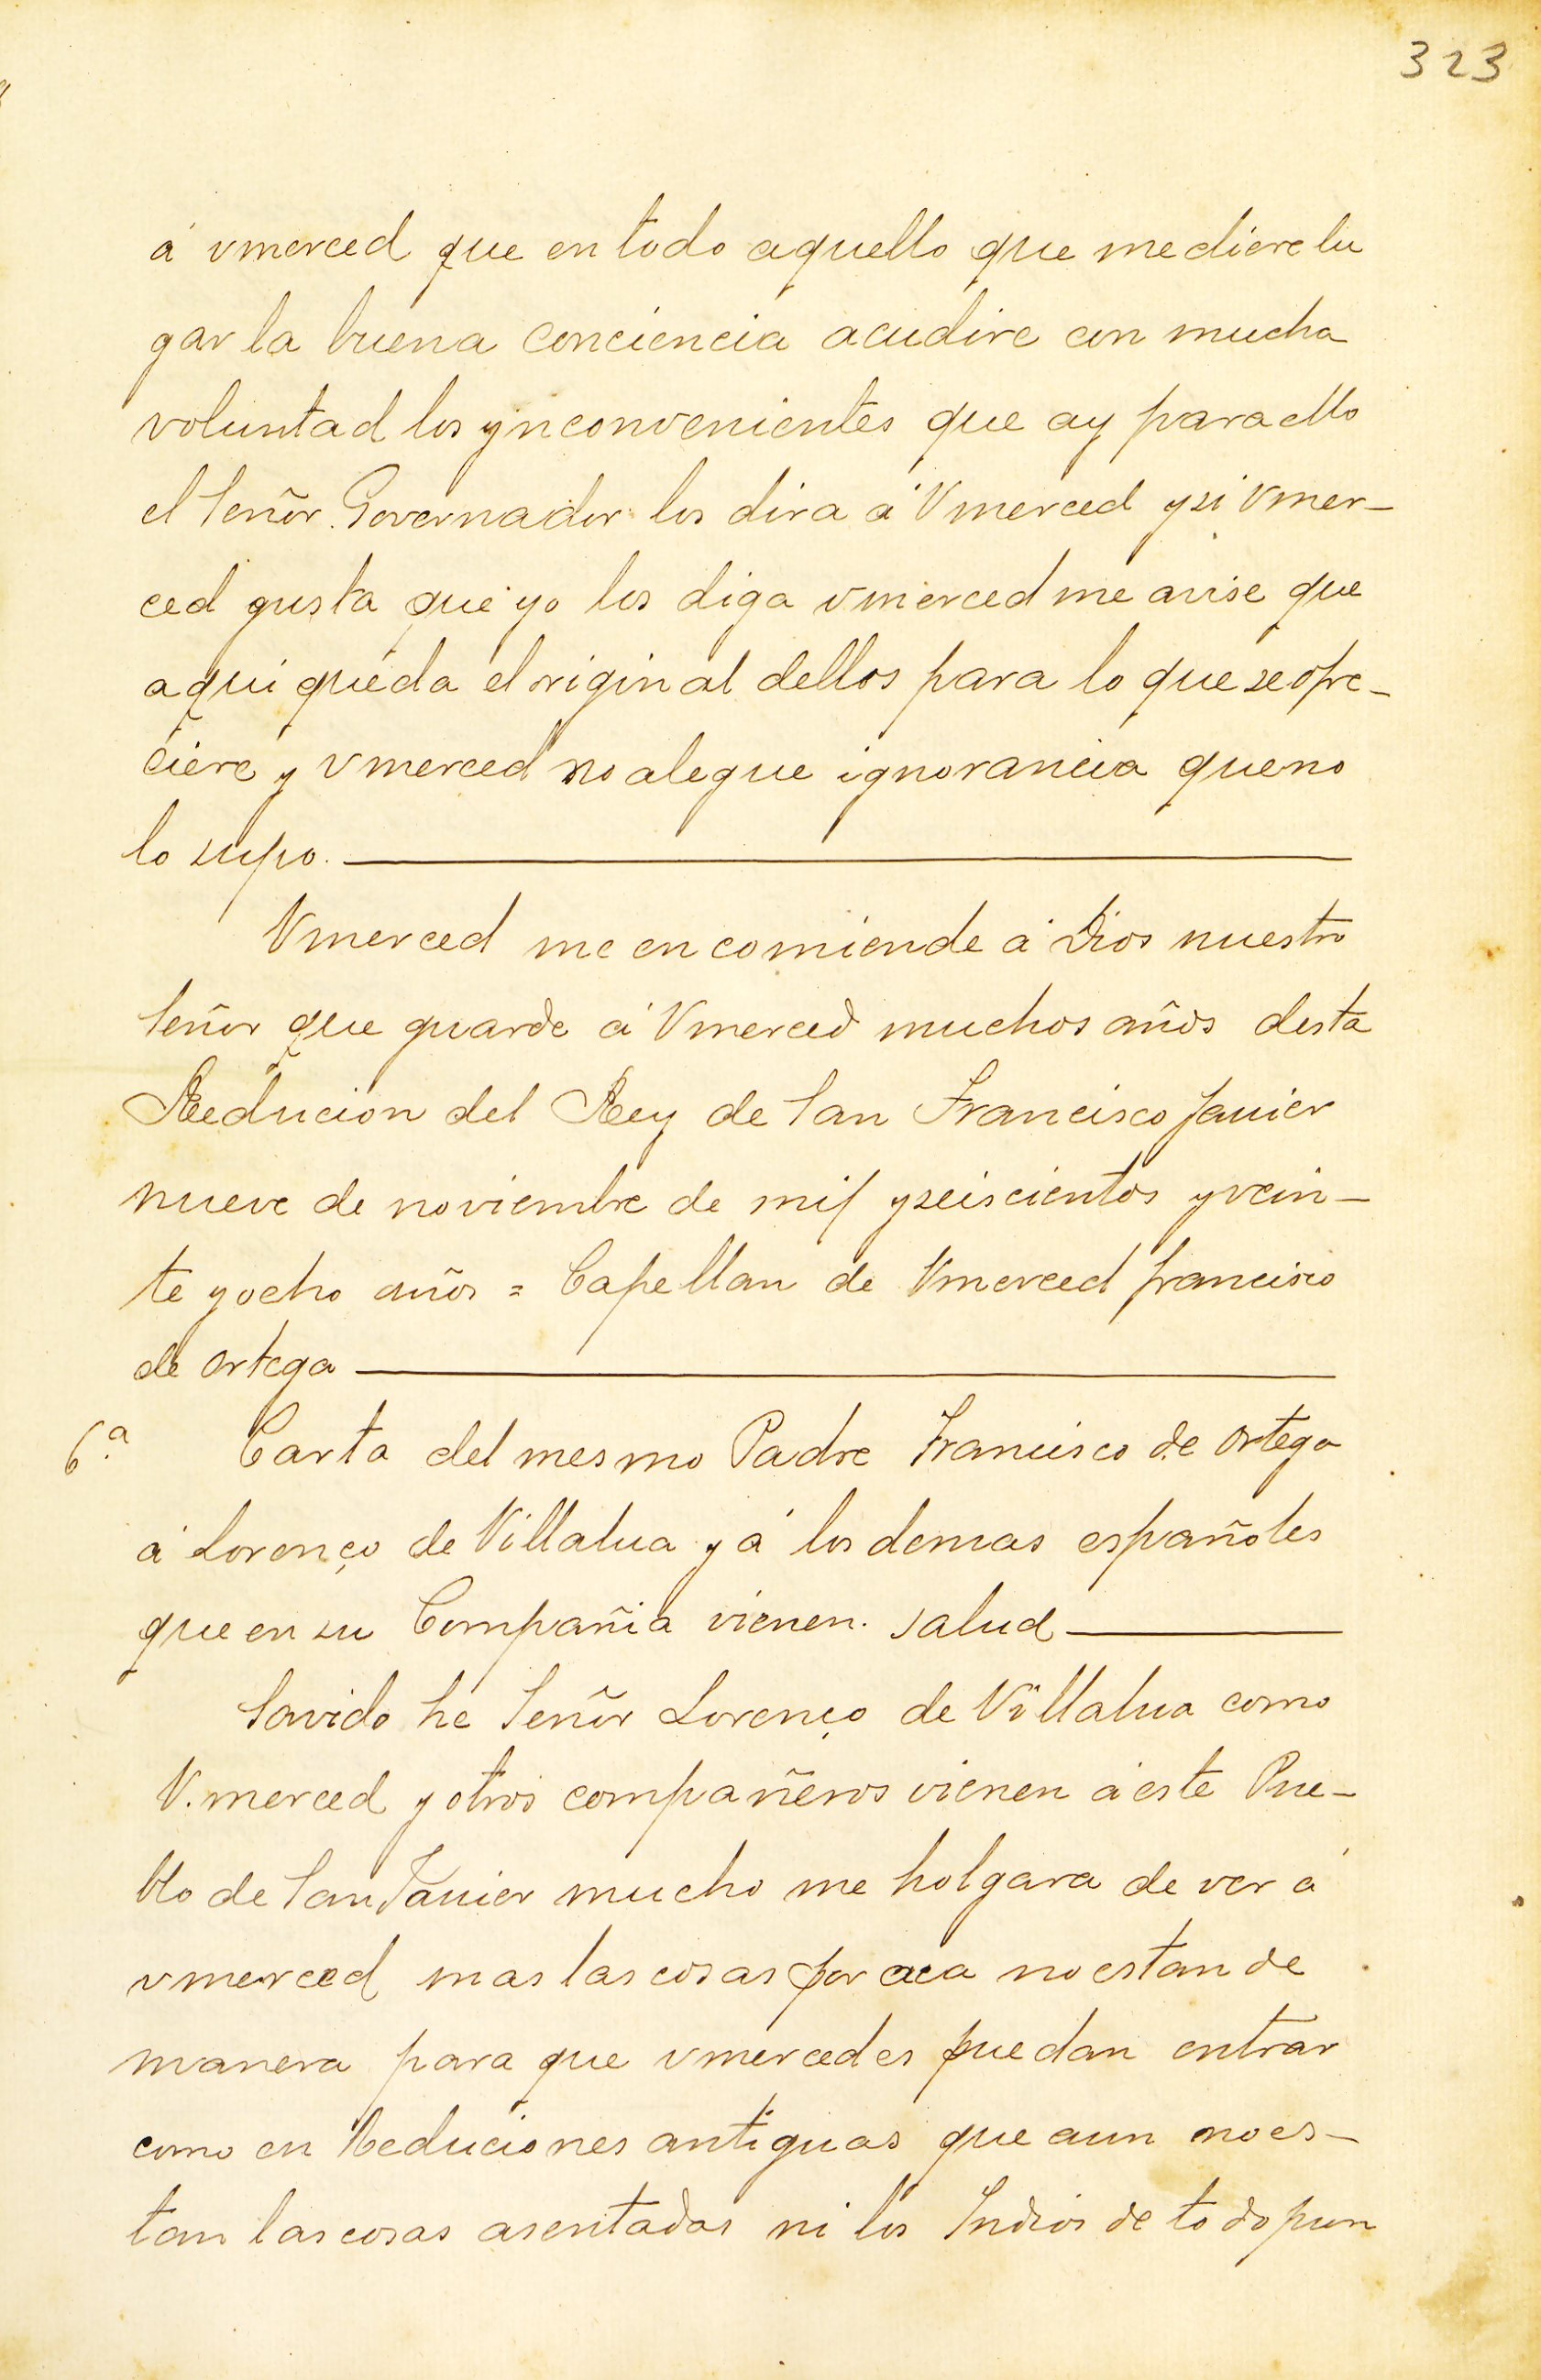 323
á vmerced que en todo aquello que me diere lu
gar la buena conciencia acudire con mucha
voluntad los ynconvenientes que ay para ello
el Señor Governador los dira á Vmerced y si Vmer-
ced gusta que yo los diga vmerced me avise que
aqui queda el original dellos para lo que se ofre-
ciere y vmerced no alegue ignorancia que no
lo supo.
Vmerced me encomiende á Dios nuestro
Señor que guarde á Vmerced muchos años desta
Reducion del Rey de San Francisco Javier
nueve de noviembre de mil y seiscientos y vein-
te y ocho años = Capellan de Vmerced francisco
de ortega
6.ª Carta del mesmo Padre Francisco de ortega
á Lorenço de Villalua y á los demas españoles
que en su Compañia vienen. salud
Savido he Señor Lorenço de Villalua como
V.merced y otros compañeros vienen á este Pue-
blo de San Javier mucho me holgara de ver á
vmerced mas las cosas por aca no estan de
manera para que vmercedes puedan entrar
como en Reduciones antiguas que aun no es-
tan las cosas asentadas ni los Indios de todo pun